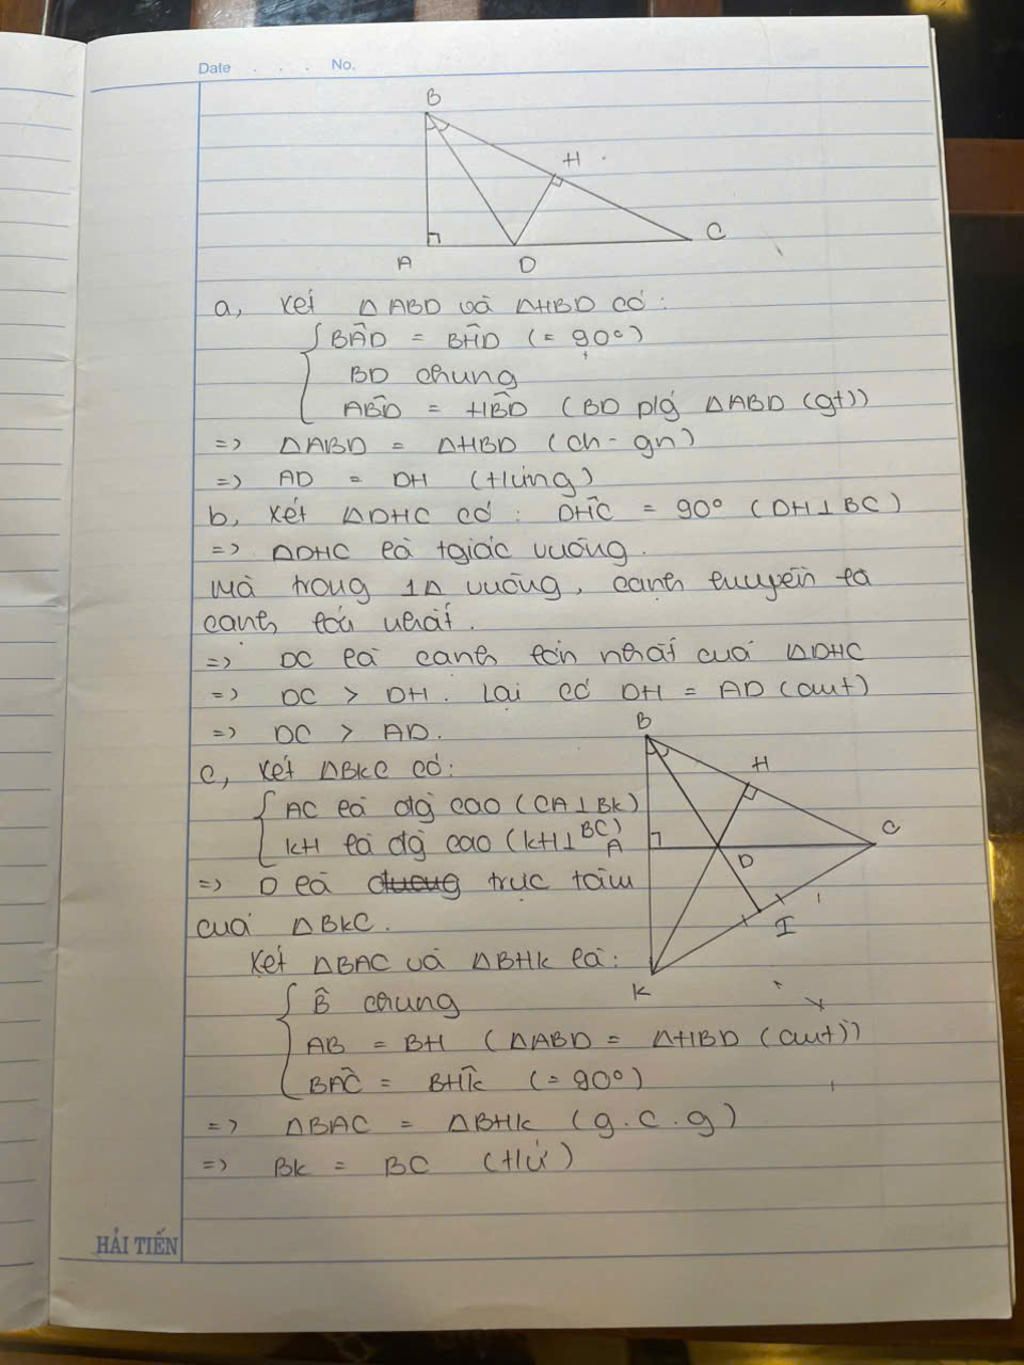 Date . . . No.
B
H
C
A D
a, Xét △ABD và △HBD có:
BÂD = BĤD (= 90°)
BD chung
AB̂D = HB̂D (BD p/g △ABD (gt))
=> △ABD = △HBD (ch - gn)
=> AD = DH (t/ứng)
b, Xét △DHC có: DĤC = 90° (DH⊥BC)
=> △DHC là tgiác vuông.
Mà trong 1△ vuông, cạnh huyền là
cạnh lớn nhất.
=> DC là cạnh lớn nhất của △DHC
=> DC > DH. Lại có DH = AD (cmt)
=> DC > AD.
c, Xét △BKC có:
AC là đg cao (CA⊥BK)
KH là đg cao (KH⊥BC)
=> D là đuong trực tâm
của △BKC.
B
H
C
A
D
I
K
Xét △BAC và △BHK là:
B̂ chung
AB = BH (△ABD = △HBD (cmt))
BÂC = BĤK (= 90°)
=> △BAC = △BHK (g.c.g)
=> BK = BC (t/ứ)
HẢI TIẾN